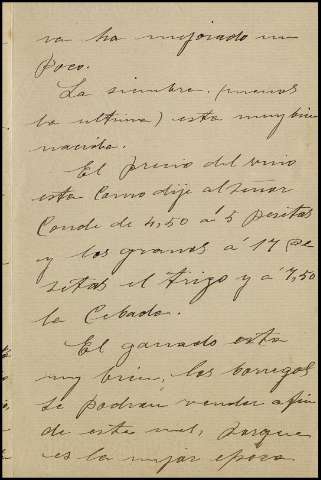 va ha mejorado un
poco.
La siembra (menos
la ultima) esta muy bien
nacida.
El precio del vino
esta como dije al señor
Conde de 4,50 á 5 pesetas
y los granos á 17 pe
setas el trigo y á 7,50
la Cebada.
El ganado esta
muy bien, los borregos
se podran vender a fin
de este mes, porque
es la mejor epoca